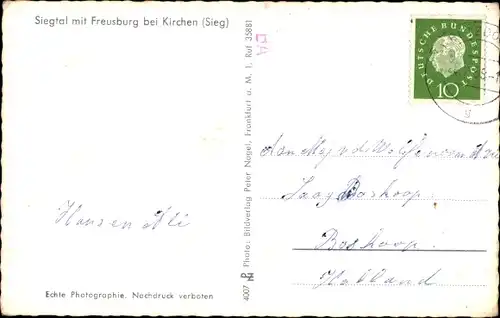 Siegtal mit Freusburg bei Kirchen (Sieg)
Hans en Ali
Echte Photographie. Nachdruck verboten
4007 Photo: Bildverlag Peter Nagel, Frankfurt a. M. 1, Ruf 35881
DEUTSCHE BUNDESPOST
10
Aan
Laag Boskoop.
Boskoop.
Holland